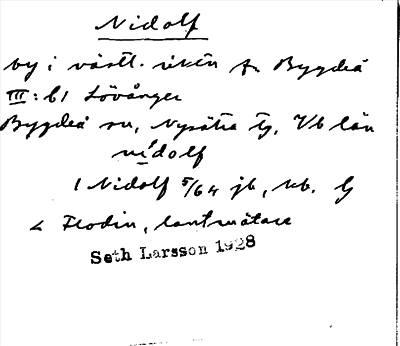 Nidolf
by i västl. viken fr. Bygdeå
III: bl Lövånger
Bygdeå sn, Nysätra tg, Vb län
nìdolf
1 Nidolf 5/64 jb, ub. G
< Flodin, lantmätare
Seth Larsson 1928